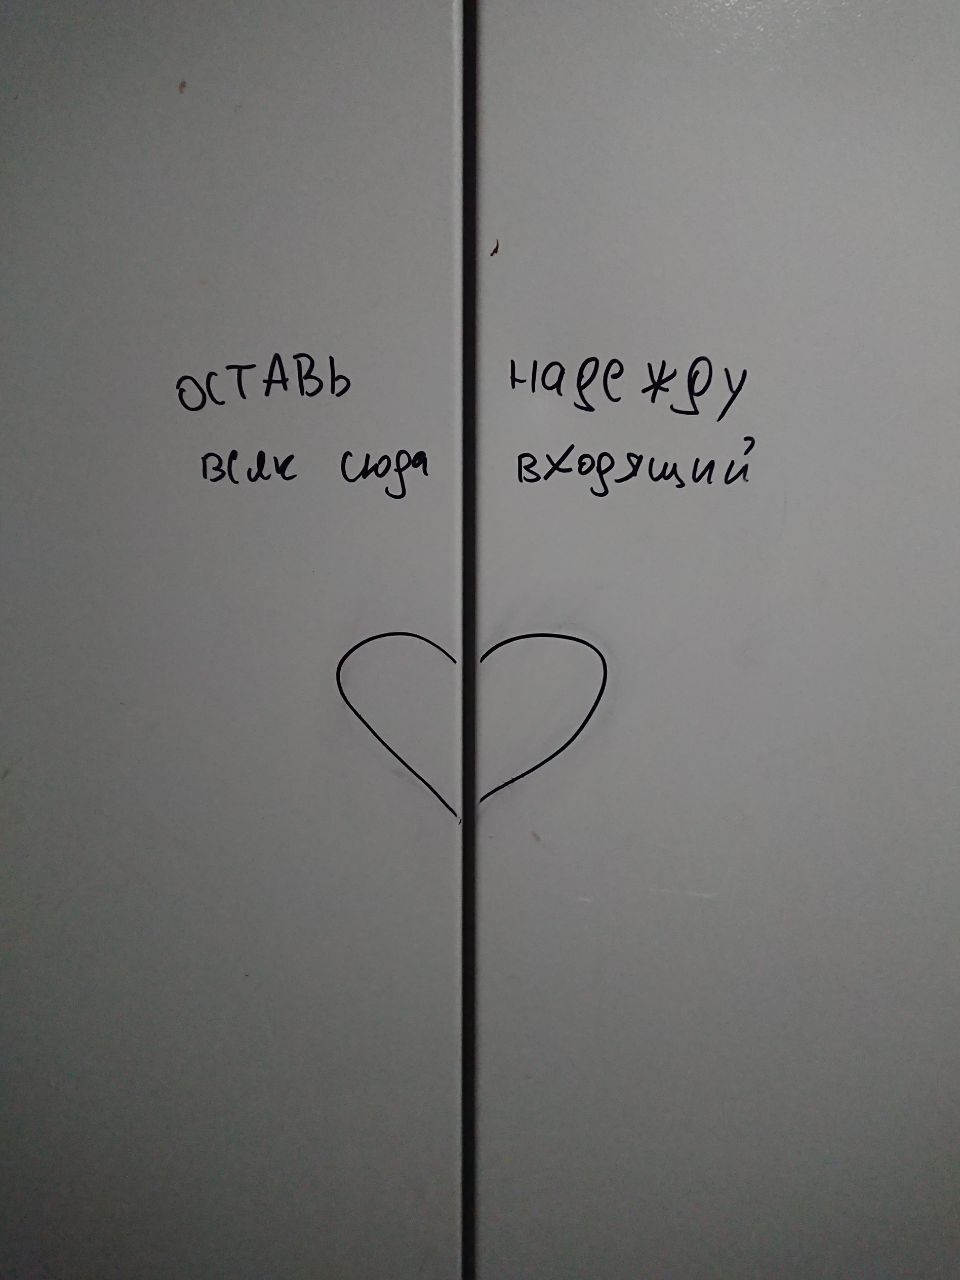 оставь надежду
всяк сюда входящий